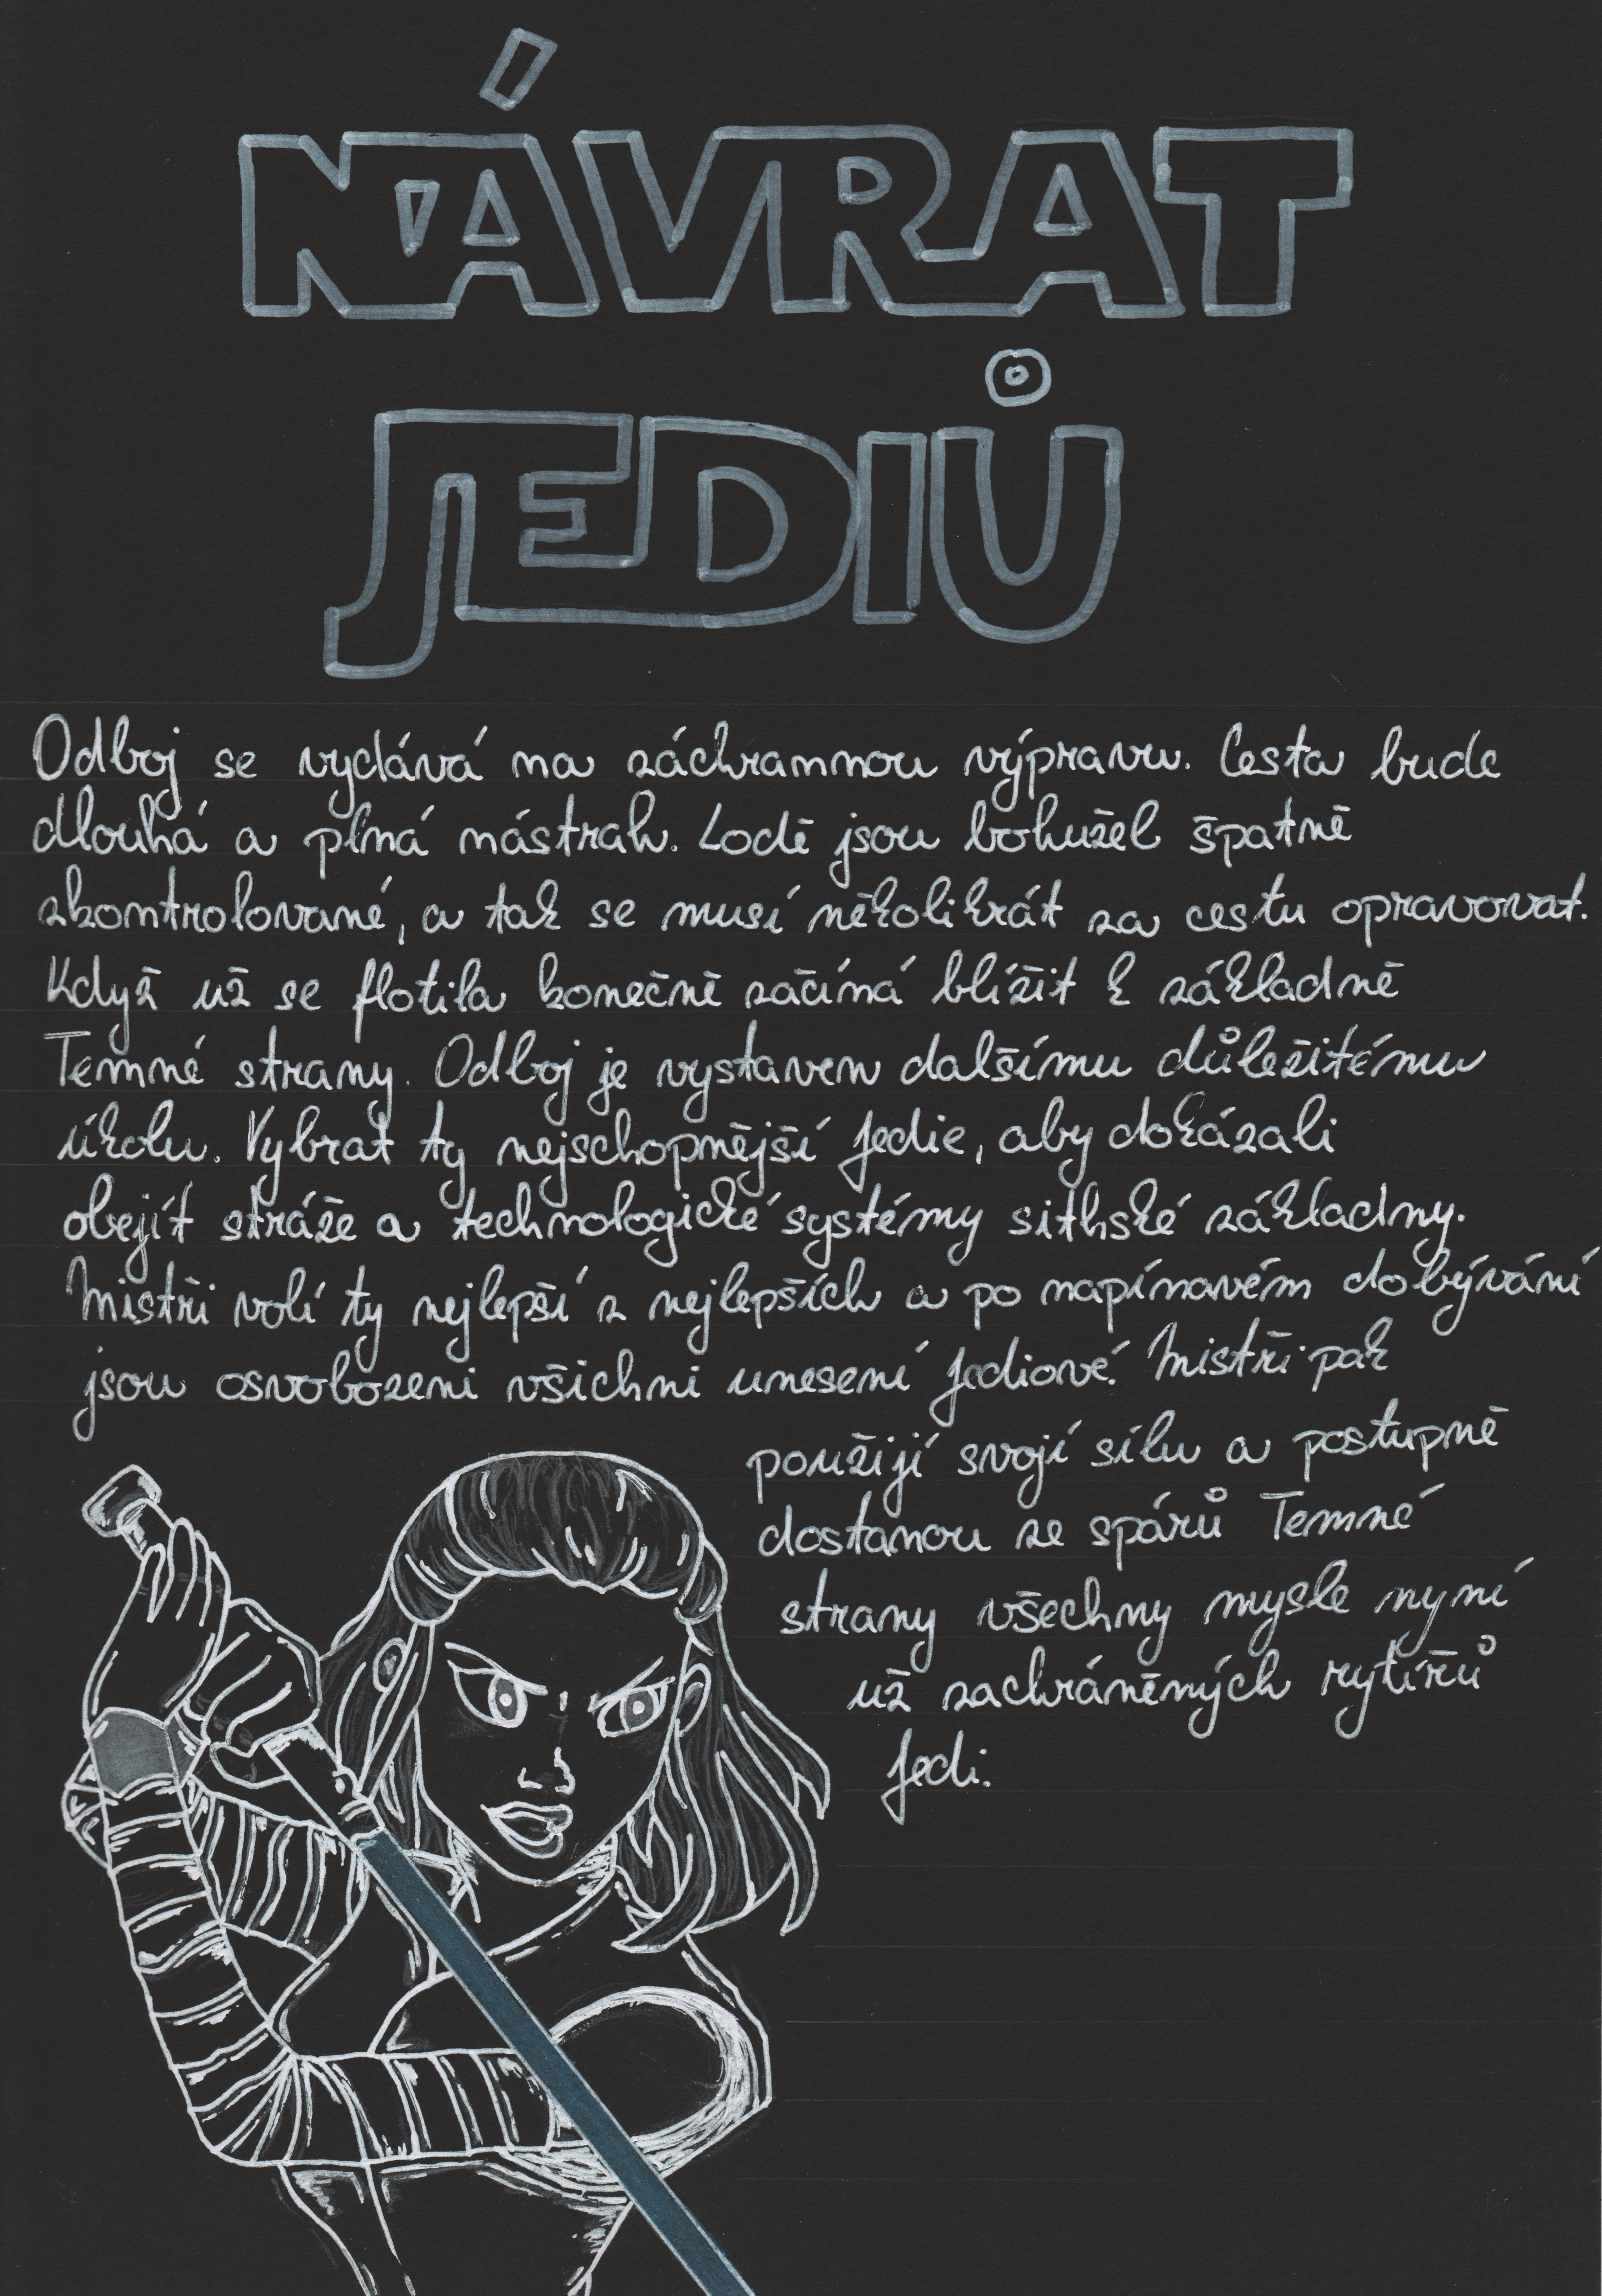 NÁVRAT
JEDIŮ
Odboj se vydává na záchrannou výpravu. Cesta bude
dlouhá a plná nástrah. Lodě jsou bohužel špatně
zkontrolované, a tak se musí několikrát za cestu opravovat.
Když už se flotila konečně začíná blížit k základně
Temné strany. Odboj je vystaven dalšímu důležitému
úkolu. Vybrat ty nejschopnější Jedie, aby dokázali
obejít stráže a technologické systémy sithské základny.
Mistři volí ty nejlepší z nejlepších a po napínavém dobývání
jsou osvobozeni všichni unesení Jediové. Mistři pak
použijí svojí sílu a postupně
dostanou ze spárů Temné
strany všechny mysle nyní
už zachráněných rytířů
Jedi.